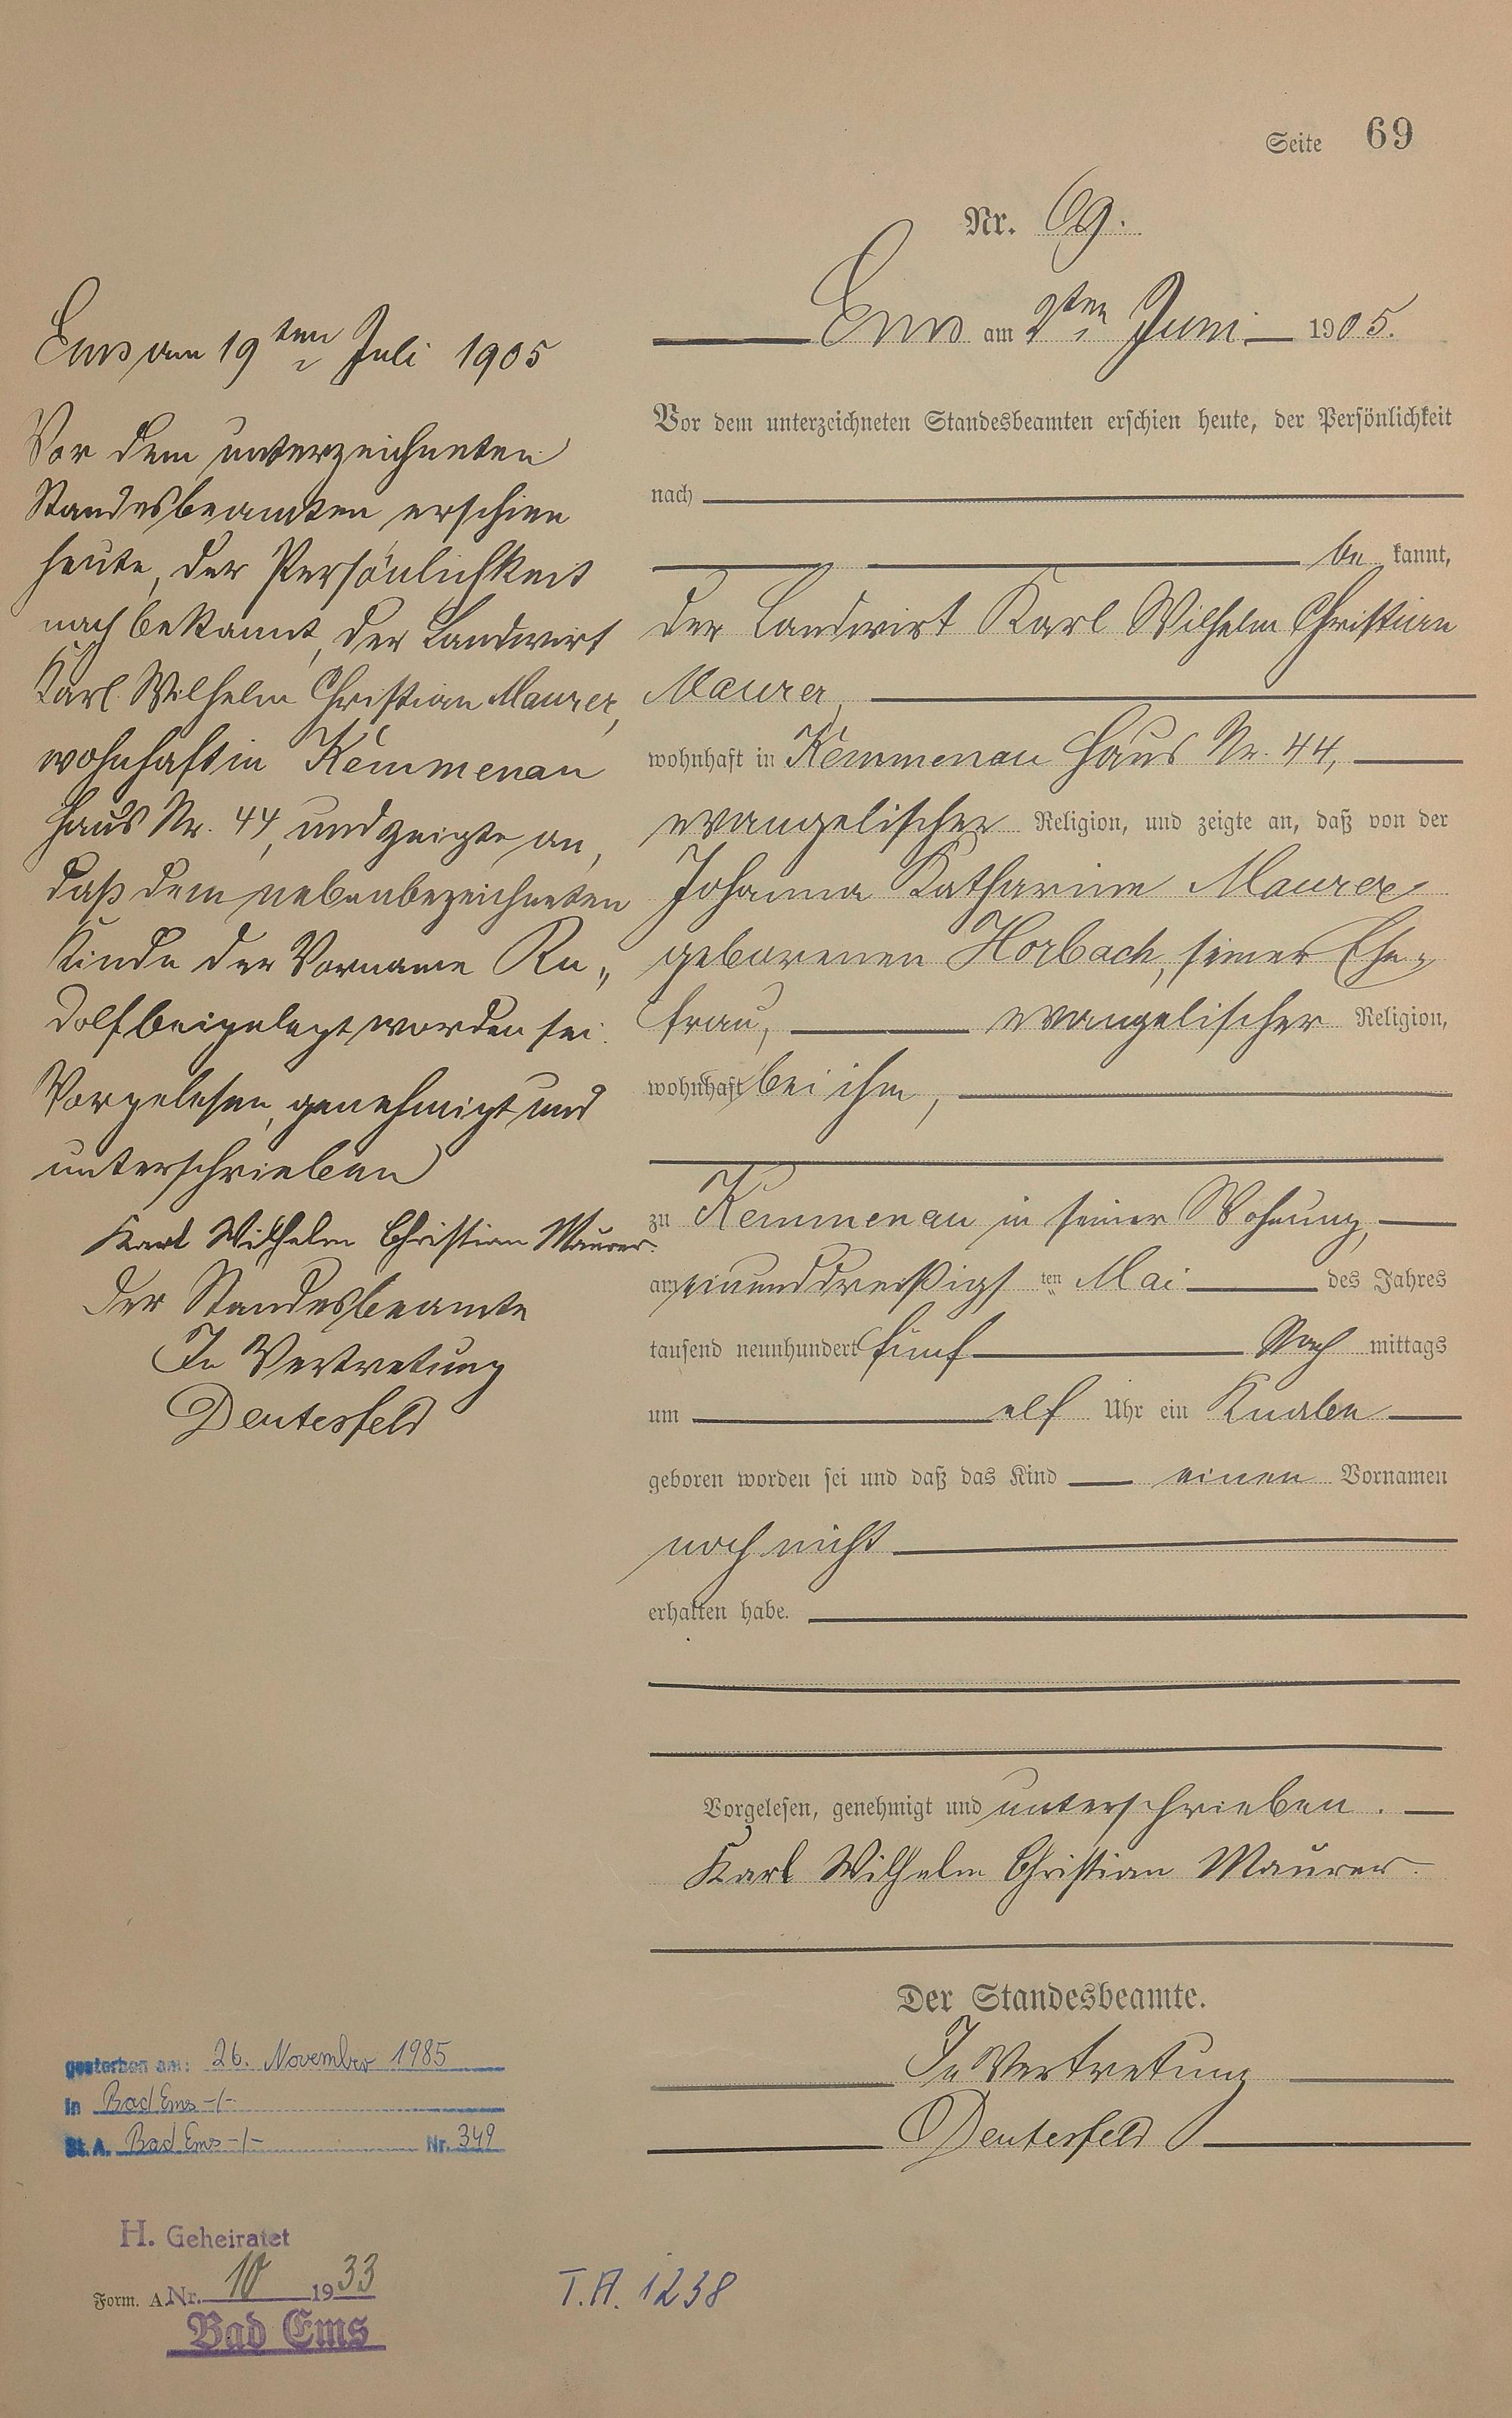 Seite 69
Nr. 69.
Ems am 2ten Juni 1905.
Vor dem unterzeichneten Standesbeamten erschien heute, der Persönlichkeit
nach
be kannt,
der Landwirt Karl Wilhelm Christian
Maurer,
wohnhaft in Kemmenau Haus Nr. 44,
evangelischer Religion, und zeigte an, daß von der
Johanna Katharine Maurer
geborenen Horbach, seiner Ehe„
frau, evangelischer Religion,
wohnhaft bei ihm,
zu Kemmenau in seiner Wohnung,
am einunddreißigs ten Mai des Jahres
tausend neunhundert fünf Nach mittags
um elf Uhr ein Knabe
geboren worden sei und daß das Kind einen Vornamen
noch nicht
erhalten habe.
Vorgelesen, genehmigt und unterschrieben.
Karl Wilhelm Christian Maurer.
Der Standesbeamte.
In Vertretung
Deutesfeld
Ems am 19ten Juli 1905
Vor dem unterzeichneten
Standesbeamten erschien
heute, der Persönlichkeit
nach bekannt, der Landwirt
Karl Wilhelm Christian Maurer,
wohnhaft in Kemmenau
Haus Nr. 44, und zeigte an,
daß dem nebenbezeichneten
Kinde der Vorname Ru„
dolf beigelegt worden sei.
Vorgelesen, genehmigt und
unterschrieben
Karl Wilhelm Christian Maurer.
Der Standesbeamte
In Vertretung
Deutesfeld
gestorben am: 26. November 1985
in Bad Ems -/-
St. A. Bad Ems -/- Nr. 349
H. Geheiratet
Form. A. Nr. 10 1933
Bad Ems
T.A. 1238